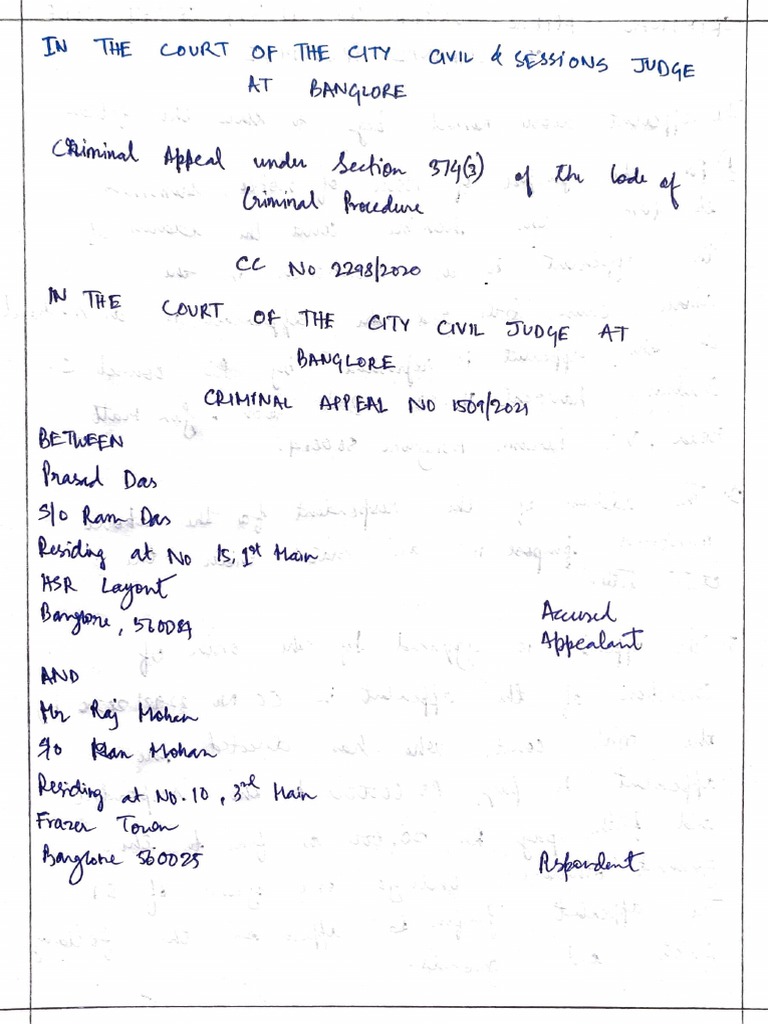 IN THE COURT OF THE CITY CIVIL & SESSIONS JUDGE
AT BANGLORE
Criminal Appeal under Section 374(3) of the Code of
Criminal Procedure
CC No 2298/2020
IN THE COURT OF THE CITY CIVIL JUDGE AT
BANGLORE
CRIMINAL APPEAL NO 1509/2021
BETWEEN
Prasad Das
S/o Ram Das
Residing at No 15, 1st Main
HSR Layout
Banglore, 560084
Accused
Appealant
AND
Mr Raj Mohan
S/o Mohan
Residing at No. 10, 3rd Main
Frazer Town
Banglore 560025
Rspondent